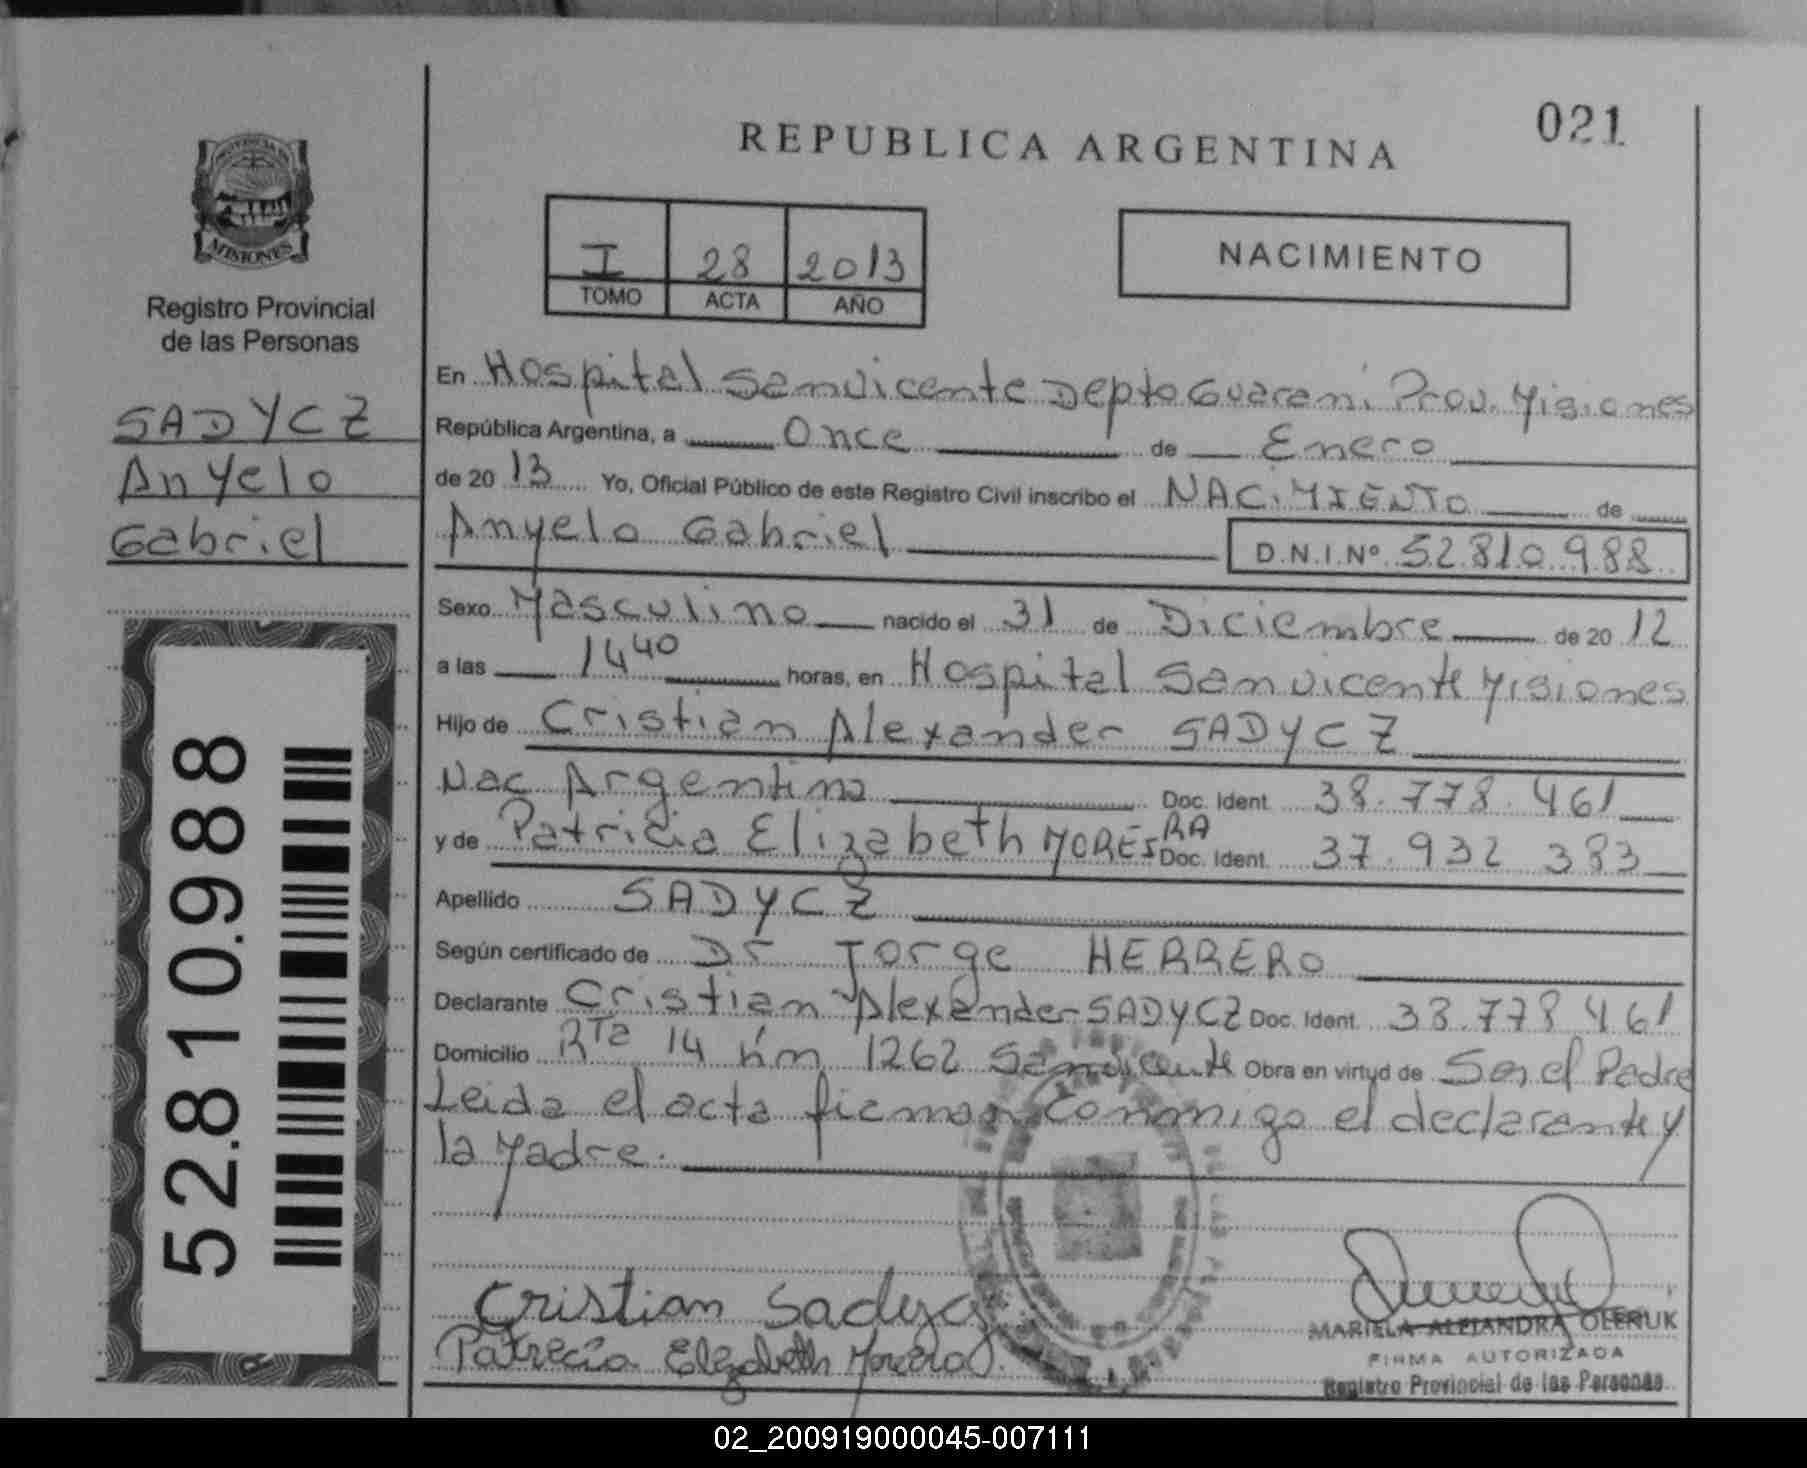 021
REPUBLICA ARGENTINA
PROVINCIA DE
MISIONES
Registro Provincial
de las Personas
SADYCZ
Anyelo
Gabriel
52.810.988
I 28 2013
TOMO ACTA AÑO
NACIMIENTO
En Hospital San Vicente Depto Guarani Prov. Misiones
República Argentina, a Once de Enero
de 20 13 Yo, Oficial Público de este Registro Civil inscribo el NACIMIENTO de
Anyelo Gabriel D.N.I.Nº 52.810.988
Sexo Masculino nacido el 31 de Diciembre de 20 12
a las 14 40 horas, en Hospital San Vicente Misiones
Hijo de Cristian Alexander SADYCZ
Nac Argentina Doc. Ident. 38.778.461
y de Patricia Elizabeth MOREIRA Doc. Ident. 37.932 383
Apellido SADYCZ
Según certificado de Dr Jorge HERRERO
Declarante Cristian Alexander SADYCZ Doc. Ident. 38.778 461
Domicilio Rta 14 km 1262 San Vicente Obra en virtud de Ser el Padre
Leida el acta firman conmigo el declarante y
la Madre.
Cristian Sadycz
Patrecia Elizabeth Moreira
MARIELA ALEJANDRA OLENIUK
FIRMA AUTORIZADA
Registro Provincial de las Personas
02_200919000045-007111